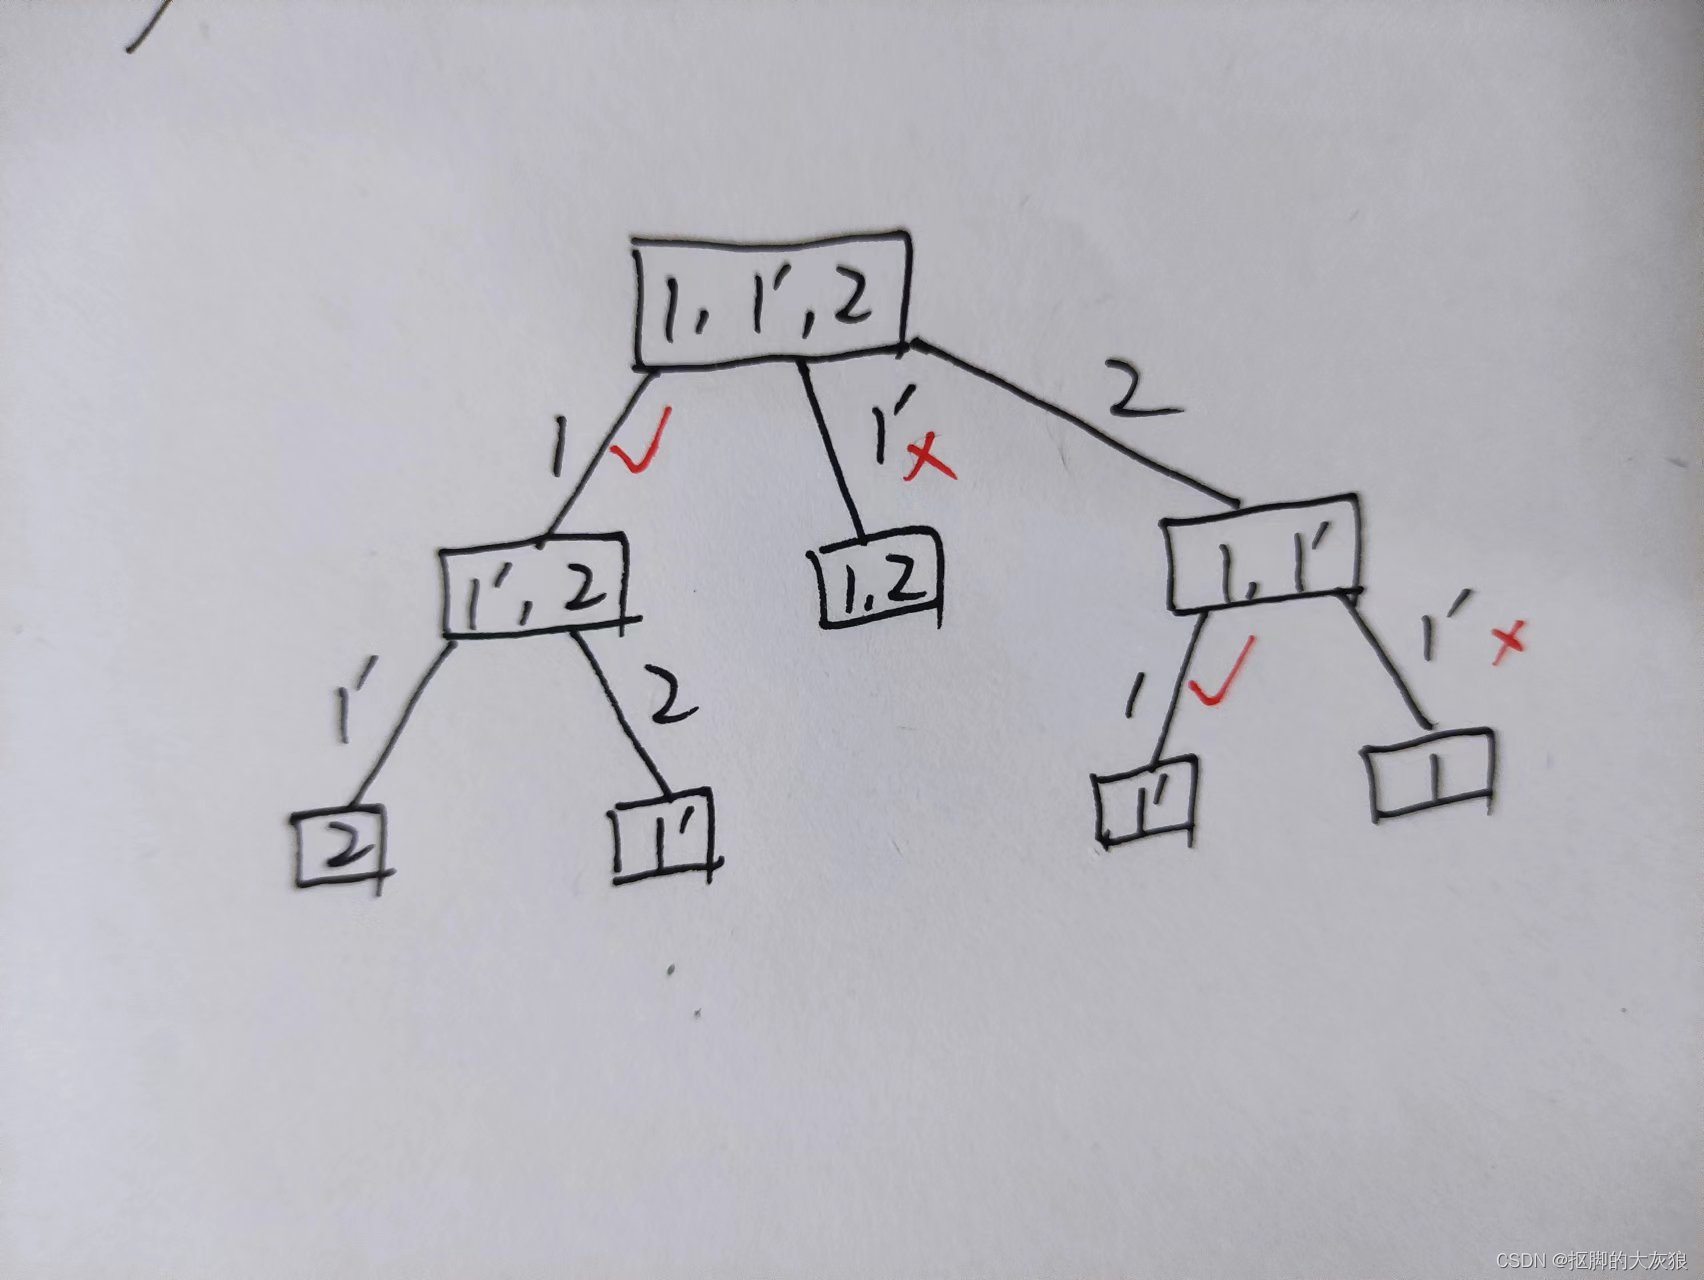 1, 1', 2
1 ✓
1' ×
2
1', 2
1, 2
1, 1'
1'
2
1 ✓
1' ×
2
1'
1'
1
CSDN @抠脚的大灰狼